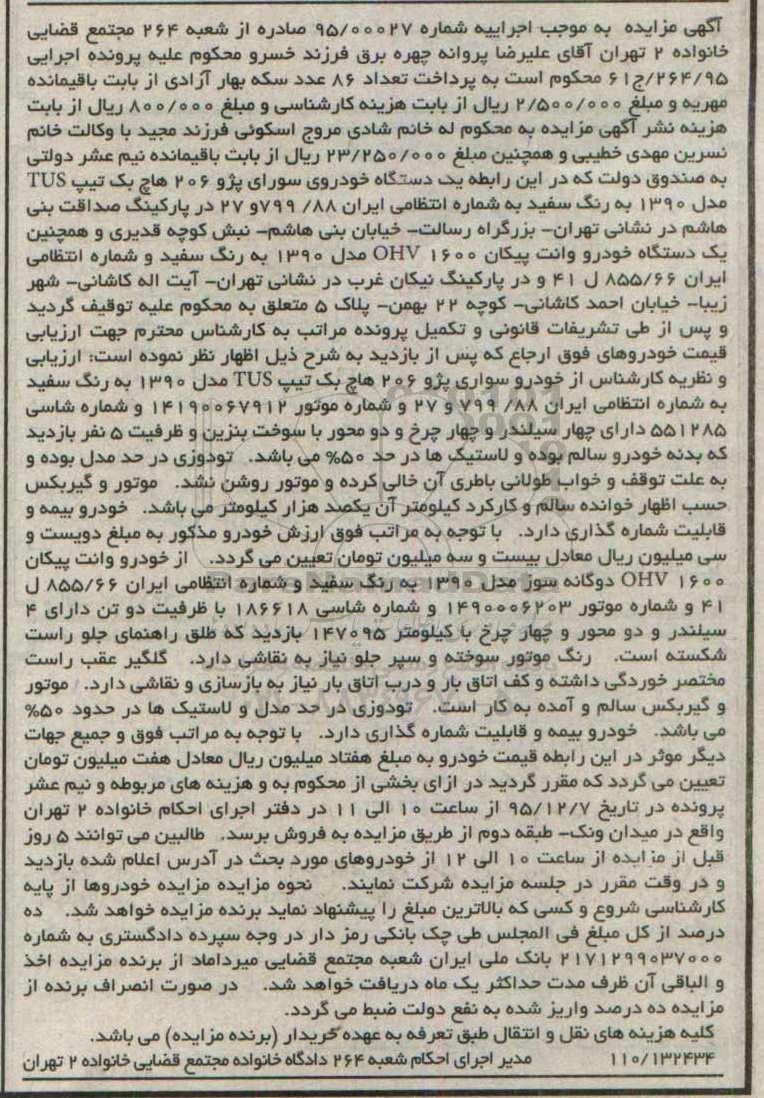 آگهی مزایده  به موجب اجراییه شماره ۹۵/۰۰۰۲۷ صادره از شعبه ۲۶۴ مجتمع قضایی
خانواده ۲ تهران آقای علیرضا پروانه چهره برق فرزند خسرو محکوم علیه پرونده اجرایی
۲۶۴/۹۵/ج۶۱ محکوم است به پرداخت تعداد ۸۶ عدد سکه بهار آزادی از بابت باقیمانده
مهریه و مبلغ ۲/۵۰۰/۰۰۰ ریال از بابت هزینه کارشناسی و مبلغ ۸۰۰/۰۰۰ ریال از بابت
هزینه نشر آگهی مزایده به محکوم له خانم شادی مروج اسکوئی فرزند مجید با وکالت خانم
نسرین مهدی خطیبی و همچنین مبلغ ۲۳/۲۵۰/۰۰۰ ریال از بابت باقیمانده نیم عشر دولتی
به صندوق دولت که در این رابطه یک دستگاه خودروی سورای پژو ۲۰۶ هاچ بک تیپ TUS
مدل ۱۳۹۰ به رنگ سفید به شماره انتظامی ایران ۸۸/ ۷۹۹و ۲۷ در پارکینگ صداقت بنی
هاشم در نشانی تهران- بزرگراه رسالت- خیابان بنی هاشم- نبش کوچه قدیری و همچنین
یک دستگاه خودرو وانت پیکان OHV ۱۶۰۰ مدل ۱۳۹۰ به رنگ سفید و شماره انتظامی
ایران ۸۵۵/۶۶ ل ۴۱ و در پارکینگ نیکان غرب در نشانی تهران- آیت اله کاشانی- شهر
زیبا- خیابان احمد کاشانی- کوچه ۲۲ بهمن- پلاک ۵ متعلق به محکوم علیه توقیف گردید
و پس از طی تشریفات قانونی و تکمیل پرونده مراتب به کارشناس محترم جهت ارزیابی
قیمت خودروهای فوق ارجاع که پس از بازدید به شرح ذیل اظهار نظر نموده است: ارزیابی
و نظریه کارشناس از خودرو سواری پژو ۲۰۶ هاچ بک تیپ TUS مدل ۱۳۹۰ به رنگ سفید
به شماره انتظامی ایران ۷۹۹/۸۸ و ۲۷ و شماره موتور ۱۴۱۹۰۰۶۷۹۱۲ و شماره شاسی
۵۵۱۲۸۵ دارای چهار سیلندر و چهار چرخ و دو محور با سوخت بنزین و ظرفیت ۵ نفر بازدید
که بدنه خودرو سالم بوده و لاستیک ها در حد ۵۰% می باشد.  تودوزی در حد مدل بوده و
به علت توقف و خواب طولانی باطری آن خالی کرده و موتور روشن نشد.  موتور و گیربکس
حسب اظهار خوانده سالم و کارکرد کیلومتر آن یکصد هزار کیلومتر می باشد.  خودرو بیمه و
قابلیت شماره گذاری دارد.  با توجه به مراتب فوق ارزش خودرو مذکور به مبلغ دویست و
سی میلیون ریال معادل بیست و سه میلیون تومان تعیین می گردد.  از خودرو وانت پیکان
OHV ۱۶۰۰ دوگانه سوز مدل ۱۳۹۰ به رنگ سفید و شماره انتظامی ایران ۸۵۵/۶۶ ل
۴۱ و شماره موتور ۱۴۹۰۰۰۶۲۰۳ و شماره شاسی ۱۸۶۶۱۸ با ظرفیت دو تن دارای ۴
سیلندر و دو محور و چهار چرخ با کیلومتر ۱۴۷۰۹۵ بازدید که طلق راهنمای جلو راست
شکسته است.  رنگ موتور سوخته و سپر جلو نیاز به نقاشی دارد.  گلگیر عقب راست
مختصر خوردگی داشته و کف اتاق بار و درب اتاق بار نیاز به بازسازی و نقاشی دارد.  موتور
و گیربکس سالم و آمده به کار است.  تودوزی در حد مدل و لاستیک ها در حدود ۵۰%
می باشد.  خودرو بیمه و قابلیت شماره گذاری دارد.  با توجه به مراتب فوق و جمیع جهات
دیگر موثر در این رابطه قیمت خودرو به مبلغ هفتاد میلیون ریال معادل هفت میلیون تومان
تعیین می گردد که مقرر گردید در ازای بخشی از محکوم به و هزینه های مربوطه و نیم عشر
پرونده در تاریخ ۹۵/۱۲/۷ از ساعت ۱۰ الی ۱۱ در دفتر اجرای احکام خانواده ۲ تهران
واقع در میدان ونک- طبقه دوم از طریق مزایده به فروش برسد.  طالبین می توانند ۵ روز
قبل از مزایده از ساعت ۱۰ الی ۱۲ از خودروهای مورد بحث در آدرس اعلام شده بازدید
و در وقت مقرر در جلسه مزایده شرکت نمایند.  نحوه مزایده مزایده خودروها از پایه
کارشناسی شروع و کسی که بالاترین مبلغ را پیشنهاد نماید برنده مزایده خواهد شد.  ده
درصد از کل مبلغ فی المجلس طی چک بانکی رمز دار در وجه سپرده دادگستری به شماره
۲۱۷۱۲۹۹۰۳۷۰۰۰ بانک ملی ایران شعبه مجتمع قضایی میرداماد از برنده مزایده اخذ
و الباقی آن ظرف مدت حداکثر یک ماه دریافت خواهد شد.  در صورت انصراف برنده از
مزایده ده درصد واریز شده به نفع دولت ضبط می گردد.
کلیه هزینه های نقل و انتقال طبق تعرفه به عهده خریدار (برنده مزایده) می باشد.
۱۱۰/۱۳۲۴۳۴  مدیر اجرای احکام شعبه ۲۶۴ دادگاه خانواده مجتمع قضایی خانواده ۲ تهران